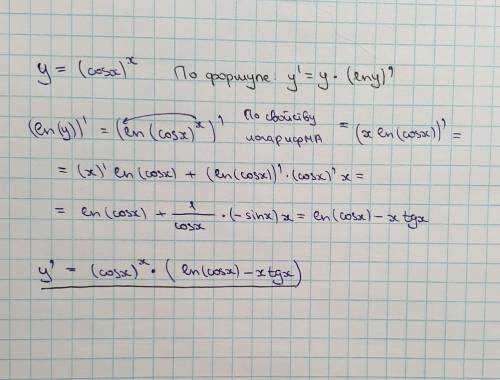 y = (cosx)^x По формуле: y' = y · (lny)'
(ln(y))' = (ln(cosx)^x)' По свойству логарифма = (x ln(cosx))' =
= (x)' ln(cosx) + (ln(cosx))' · (cosx)' x =
= ln(cosx) + 1/cosx · (-sinx) x = ln(cosx) - x tgx
y' = (cosx)^x · (ln(cosx) - x tgx)